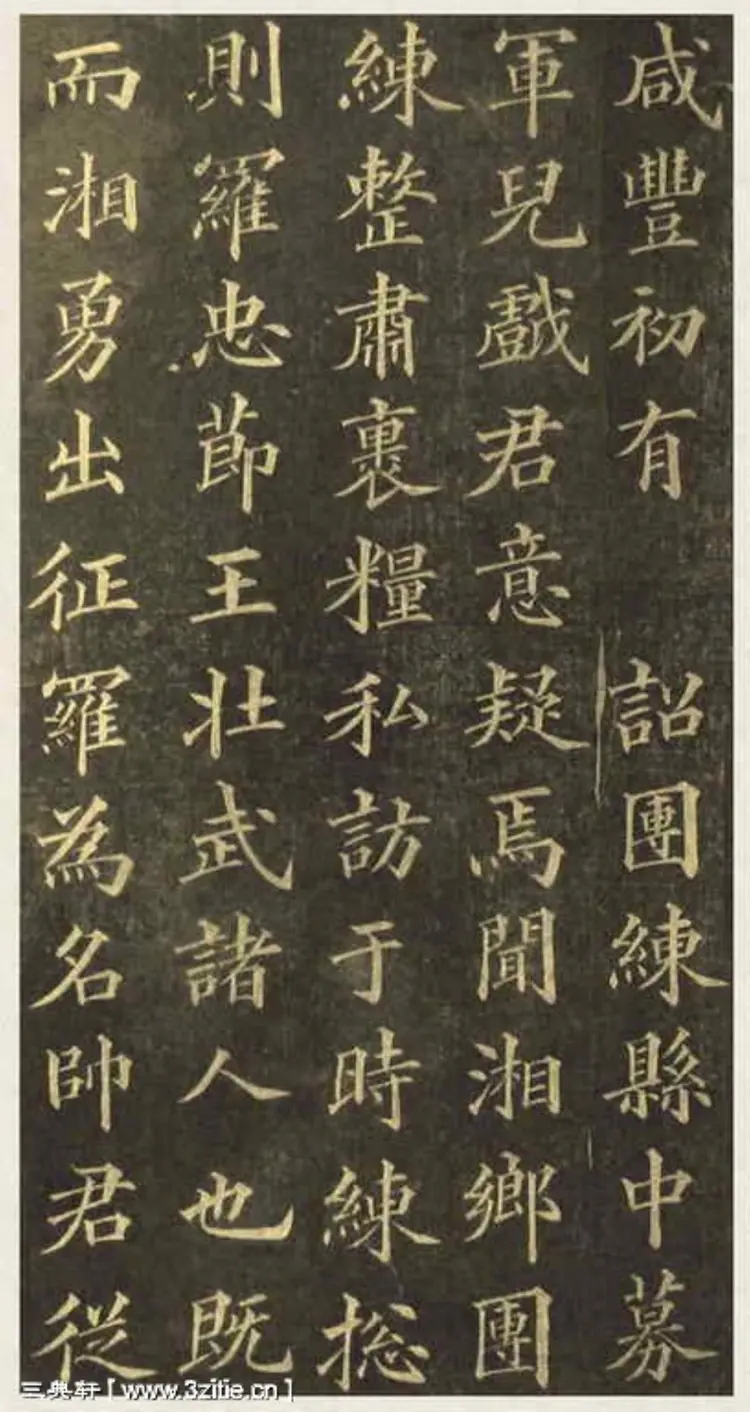 咸豐初有 詔團練縣中募
軍兒戲君意疑焉聞湘鄉團
練整肅裹糧私訪于時練捴
則羅忠節王壮武諸人也既
而湘勇出征羅為名帥君從
三典轩[www.3zitie.cn]